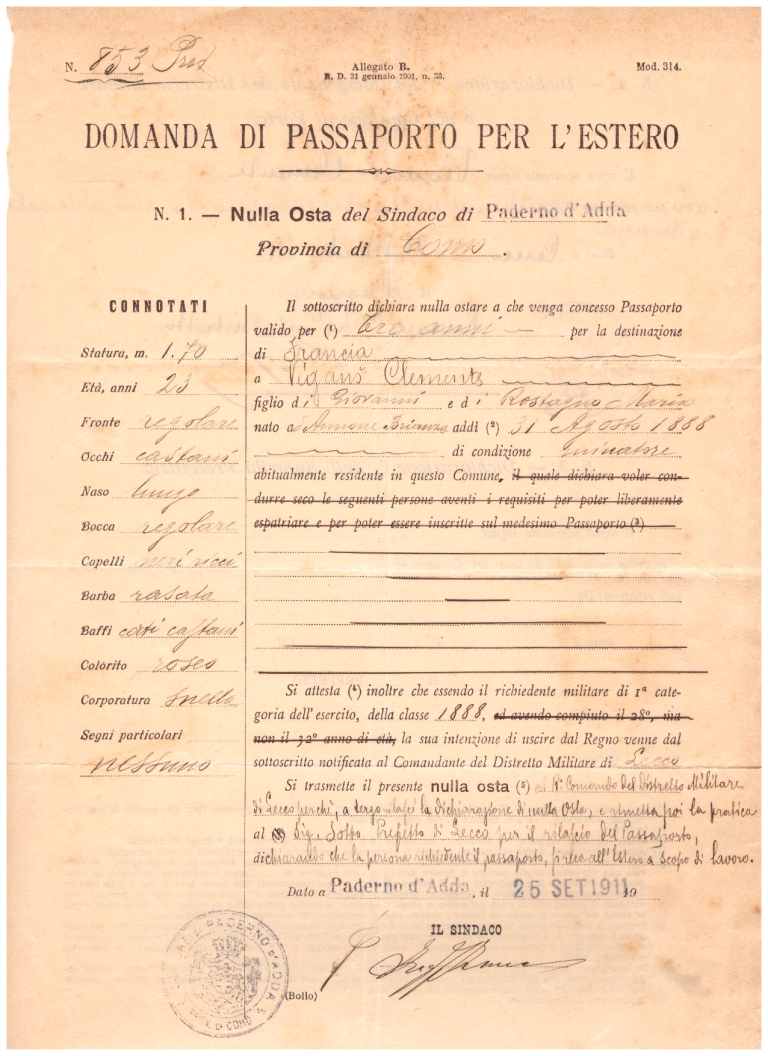 N. 853 Pref
Allegato B.
R. D. 31 gennaio 1901, n. 36.
Mod. 314.
DOMANDA DI PASSAPORTO PER L'ESTERO
N. 1. — Nulla Osta del Sindaco di Paderno d'Adda
Provincia di Como.
CONNOTATI
Statura, m. 1.70
Età, anni 23
Fronte regolare
Occhi castani
Naso lungo
Bocca regolare
Capelli neri ricci
Barba rasata
Baffi corti castani
Colorito roseo
Corporatura snella
Segni particolari
nessuno
Il sottoscritto dichiara nulla ostare a che venga concesso Passaporto
valido per (1) Tre anni — per la destinazione
di Francia
a Viganò Clemente
figlio di Giovanni e di Rostagno Maria
nato a Annone Brianza addì (2) 31 Agosto 1888
di condizione
abitualmente residente in questo Comune, il quale dichiara voler con-
durre seco le seguenti persone aventi i requisiti per poter liberamente
espatriare e per poter essere inscritte sul medesimo Passaporto (3)
Si attesta (4) inoltre che essendo il richiedente militare di 1ª cate-
goria dell'esercito, della classe 1888, ed avendo compiuto il 28º, ma
non il 32º anno di età, la sua intenzione di uscire dal Regno venne dal
sottoscritto notificata al Comandante del Distretto Militare di Lecco
Si trasmette il presente nulla osta (5) al Rº Comando del Distretto Militare
di Lecco perchè, a tergo rilasci la dichiarazione di nulla osta, e rimetta poi la pratica
al Sig. Sotto Prefetto di Lecco per il rilascio del Passaporto,
dichiarando che la persona richiedente il passaporto, si reca all'Estero a scopo di lavoro.
Dato a Paderno d'Adda, il 25 SET 1911 19
IL SINDACO
(Bollo)
PADERNO D'ADDA
DI COMO